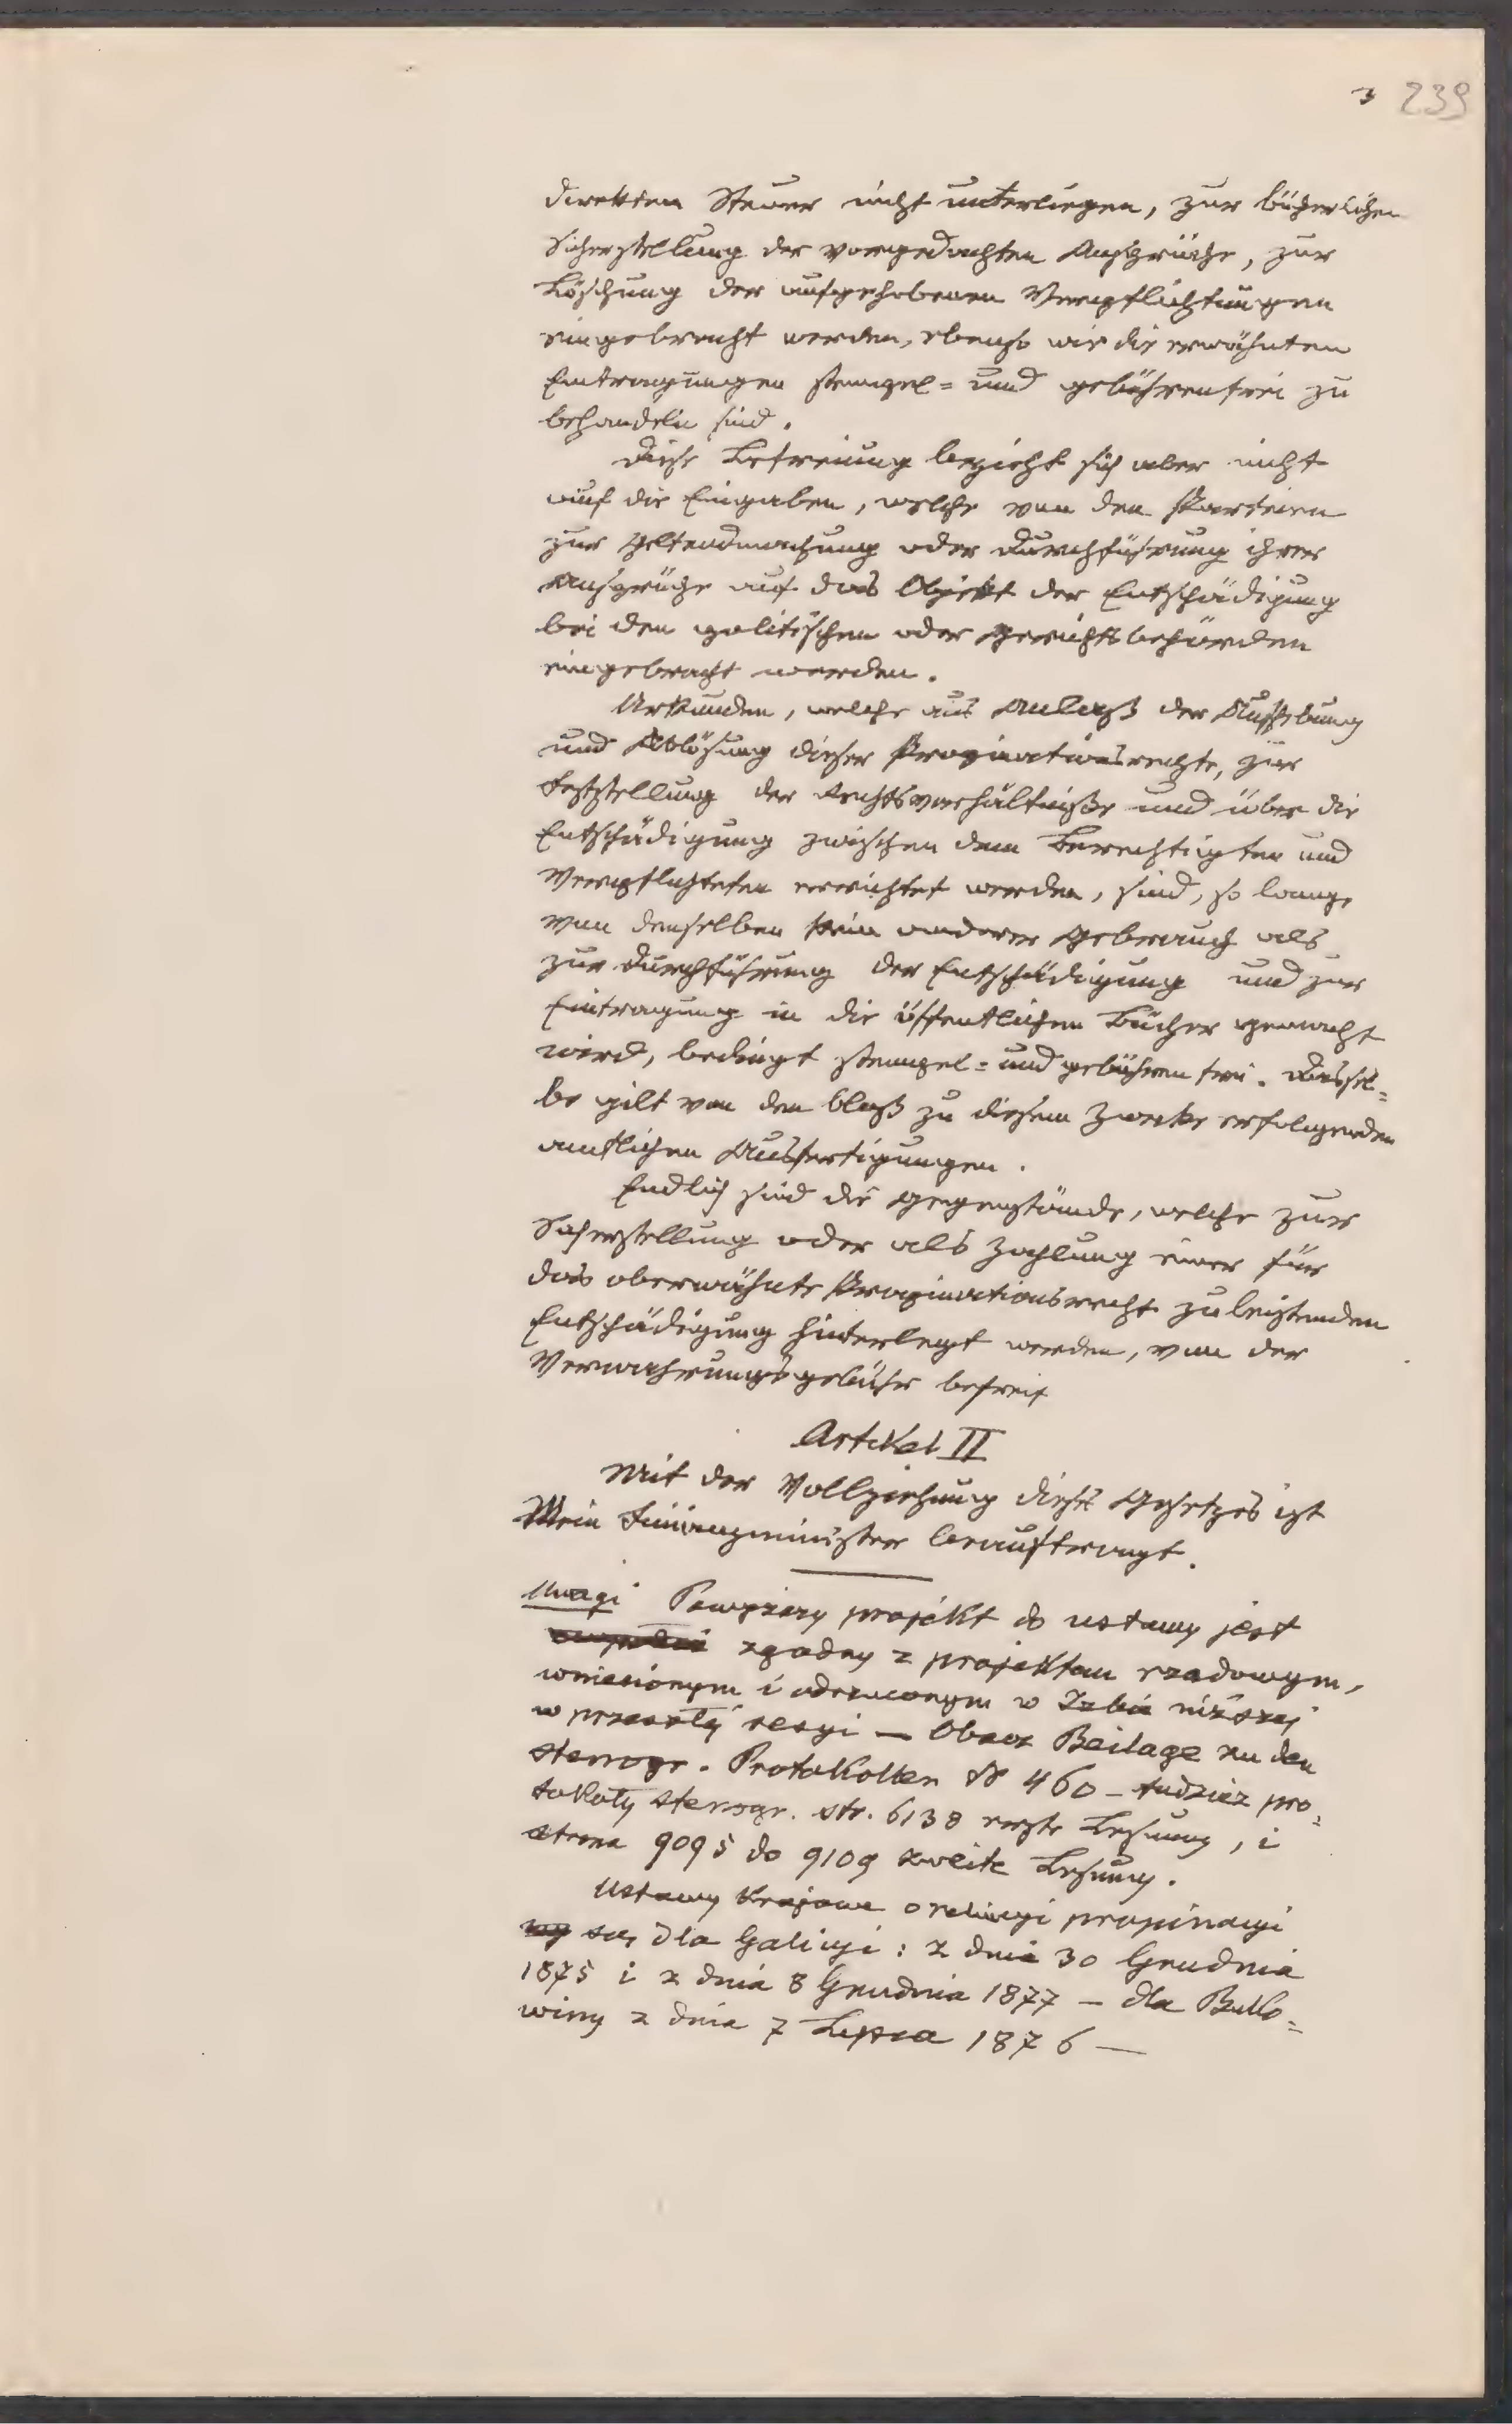 3 239
direkten Steuer nicht unterliegen, zur bücherlichen
Sicherstellung der vorgedachten Ansprüche, zur
Löschung der aufgehobenen Verpflichtungen
eingebracht werden, ebenso wie die erwähnten
Eintragungen stempel= und gebührenfrei zu
behandeln sind.
Diese Befreiung bezieht sich aber nicht
auf die Eingaben, welche von den Parteien
zur Geltendmachung oder Durchführung ihrer
Ansprüche auf das Objekt der Entschädigung
bei den politischen oder Gerichtsbehörden
eingebracht werden.
Urkunden, welche aus Anlaß der Aufhebung
und Ablösung dieser Propinationsrechte, zur
Feststellung der Rechtsverhältniße und über die
Entschädigung zwischen dem Berechtigten und
Verpflichteten errichtet werden, sind, so lange
von denselben kein anderer Gebrauch als
zur Durchführung der Entschädigung und zur
Eintragung in die öffentlichen Bücher gemacht
wird, bedingt stempel= und gebührenfrei. Dassel=
be gilt von den bloß zu diesem Zwecke erfolgenden
amtlichen Ausfertigungen.
Endlich sind die Gegenstände, welche zur
Sicherstellung oder als Zahlung einer für
das oberwähnte Propinationsrecht zu leistenden
Entschädigung hinterlegt werden, von der
Verwahrungsgebühr befreit
Artikel II
Mit der Vollziehung dieses Gesetzes ist
Mein Finanzminister beauftragt.
Uwagi Powyższy projekt do ustawy jest
zgodny z projektem rządowym,
wniesionym i odrzuconym w Izbie niższej
w przeszłej sesyi — Obacz Beilage zu den
stenogr. Protokollen № 460 – tudzież pro=
tokoły stenogr. str. 6138 erste Lesung, i
strona 9095 do 9109 zweite Lesung.
Ustawy krajowe o propinacyi
są, dla Galicyi: z dnia 30 Grudnia
1875 i z dnia 8 Grudnia 1877 – dla Buko=
winy z dnia 7 Lipca 1876 —